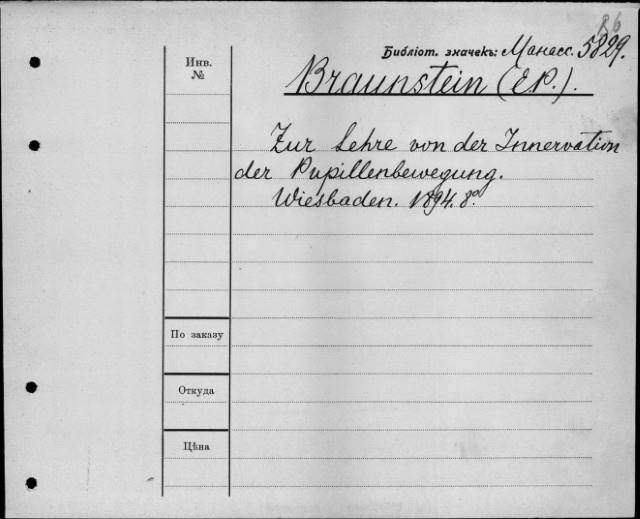 86
Библіот. значекъ: Манасс. 5829.
Инв.
№
Braunstein (E.P.).
Zur Lehre von der Innervation
der Pupillenbewegung.
Wiesbaden. 1894. 8°
По заказу
Откуда
Цѣна